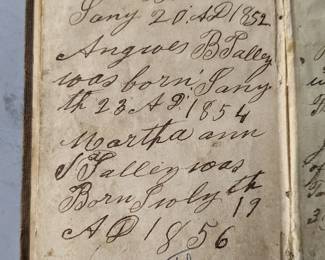 Jany 20 AD 1852
Angwes B Talley
was born Jany
th 23 AD 1854
Martha ann
J Talley was
Born Iwly th
19
AD 1856